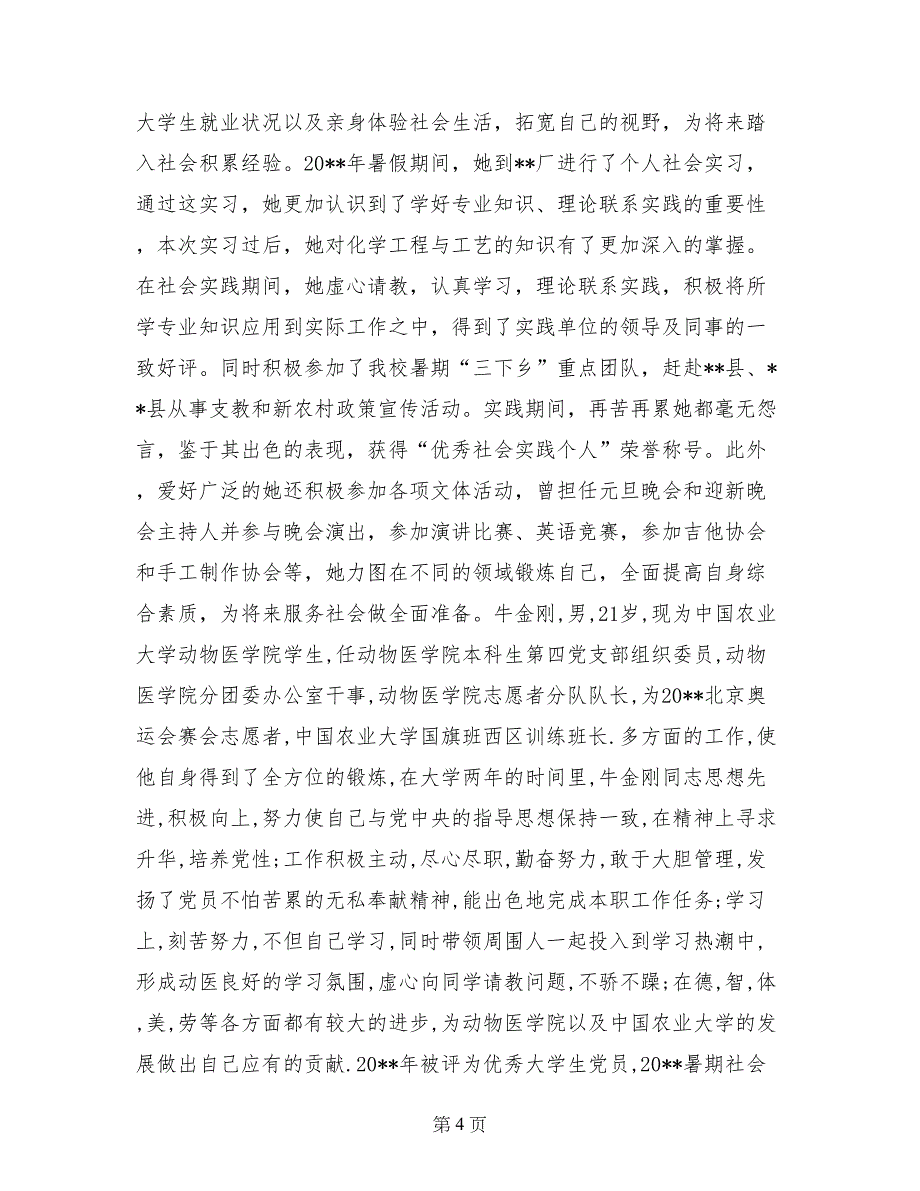 大学生就业状况以及亲身体验社会生活，拓宽自己的视野，为将来踏
入社会积累经验。20**年暑假期间，她到**厂进行了个人社会实习，
通过这实习，她更加认识到了学好专业知识、理论联系实践的重要性
，本次实习过后，她对化学工程与工艺的知识有了更加深入的掌握。
在社会实践期间，她虚心请教，认真学习，理论联系实践，积极将所
学专业知识应用到实际工作之中，得到了实践单位的领导及同事的一
致好评。同时积极参加了我校暑期“三下乡”重点团队，赶赴**县、*
*县从事支教和新农村政策宣传活动。实践期间，再苦再累她都毫无怨
言，鉴于其出色的表现，获得“优秀社会实践个人”荣誉称号。此外
，爱好广泛的她还积极参加各项文体活动，曾担任元旦晚会和迎新晚
会主持人并参与晚会演出，参加演讲比赛、英语竞赛，参加吉他协会
和手工制作协会等，她力图在不同的领域锻炼自己，全面提高自身综
合素质，为将来服务社会做全面准备。牛金刚,男,21岁,现为中国农业
大学动物医学院学生,任动物医学院本科生第四党支部组织委员,动物
医学院分团委办公室干事,动物医学院志愿者分队队长,为20**北京奥
运会赛会志愿者,中国农业大学国旗班西区训练班长.多方面的工作,使
他自身得到了全方位的锻炼,在大学两年的时间里,牛金刚同志思想先
进,积极向上,努力使自己与党中央的指导思想保持一致,在精神上寻求
升华,培养党性;工作积极主动,尽心尽职,勤奋努力,敢于大胆管理,发
扬了党员不怕苦累的无私奉献精神,能出色地完成本职工作任务;学习
上,刻苦努力,不但自己学习,同时带领周围人一起投入到学习热潮中,
形成动医良好的学习氛围,虚心向同学请教问题,不骄不躁;在德,智,体
,美,劳等各方面都有较大的进步,为动物医学院以及中国农业大学的发
展做出自己应有的贡献.20**年被评为优秀大学生党员,20**暑期社会
第 4 页